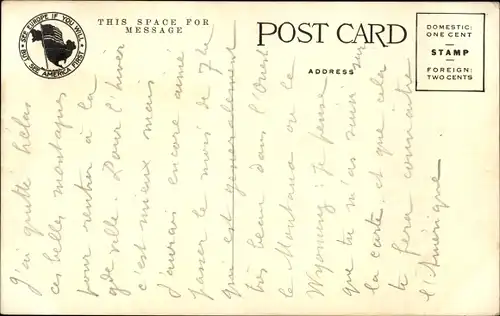 SEE EUROPE IF YOU WILL
BUT SEE AMERICA FIRST
THIS SPACE FOR
MESSAGE
POST CARD
ADDRESS
DOMESTIC:
ONE CENT
STAMP
FOREIGN:
TWO CENTS
J'ai quitté hélas
ces belles montagnes
pour rentrer à la
gde ville. Pour l'hiver
c'est mieux mais
j'aurais encore aimé
passer le mois de 7bre
qui est généralement
très beau dans l'Ouest
le Montana ou le
Wyoming; je pense
que tu m'as suivi sur
la carte, et que cela
te fera connaître
l'Amérique